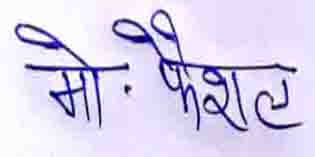 मो. फैशल